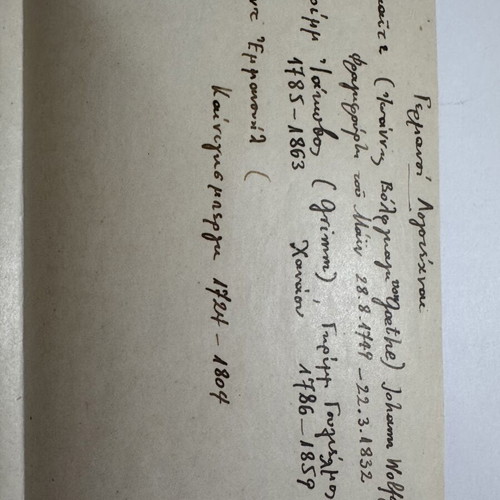 Γερμανοί Λογοτέχναι
καίτε (Ἰωάννης Βόλφγκαγκ von Goethe) Johann Wolfg
Φραγκφούρτη τοῦ Μάιν 28.8.1749-22.3.1832
ρίμμ Ἰάκωβος (Grimm), Γκρίμμ Γουλιέλμος
1785-1863 Χανάου 1786-1859
ντ Ἐμμανουήλ (
Καίνιγκσμπεργκ 1724-1804